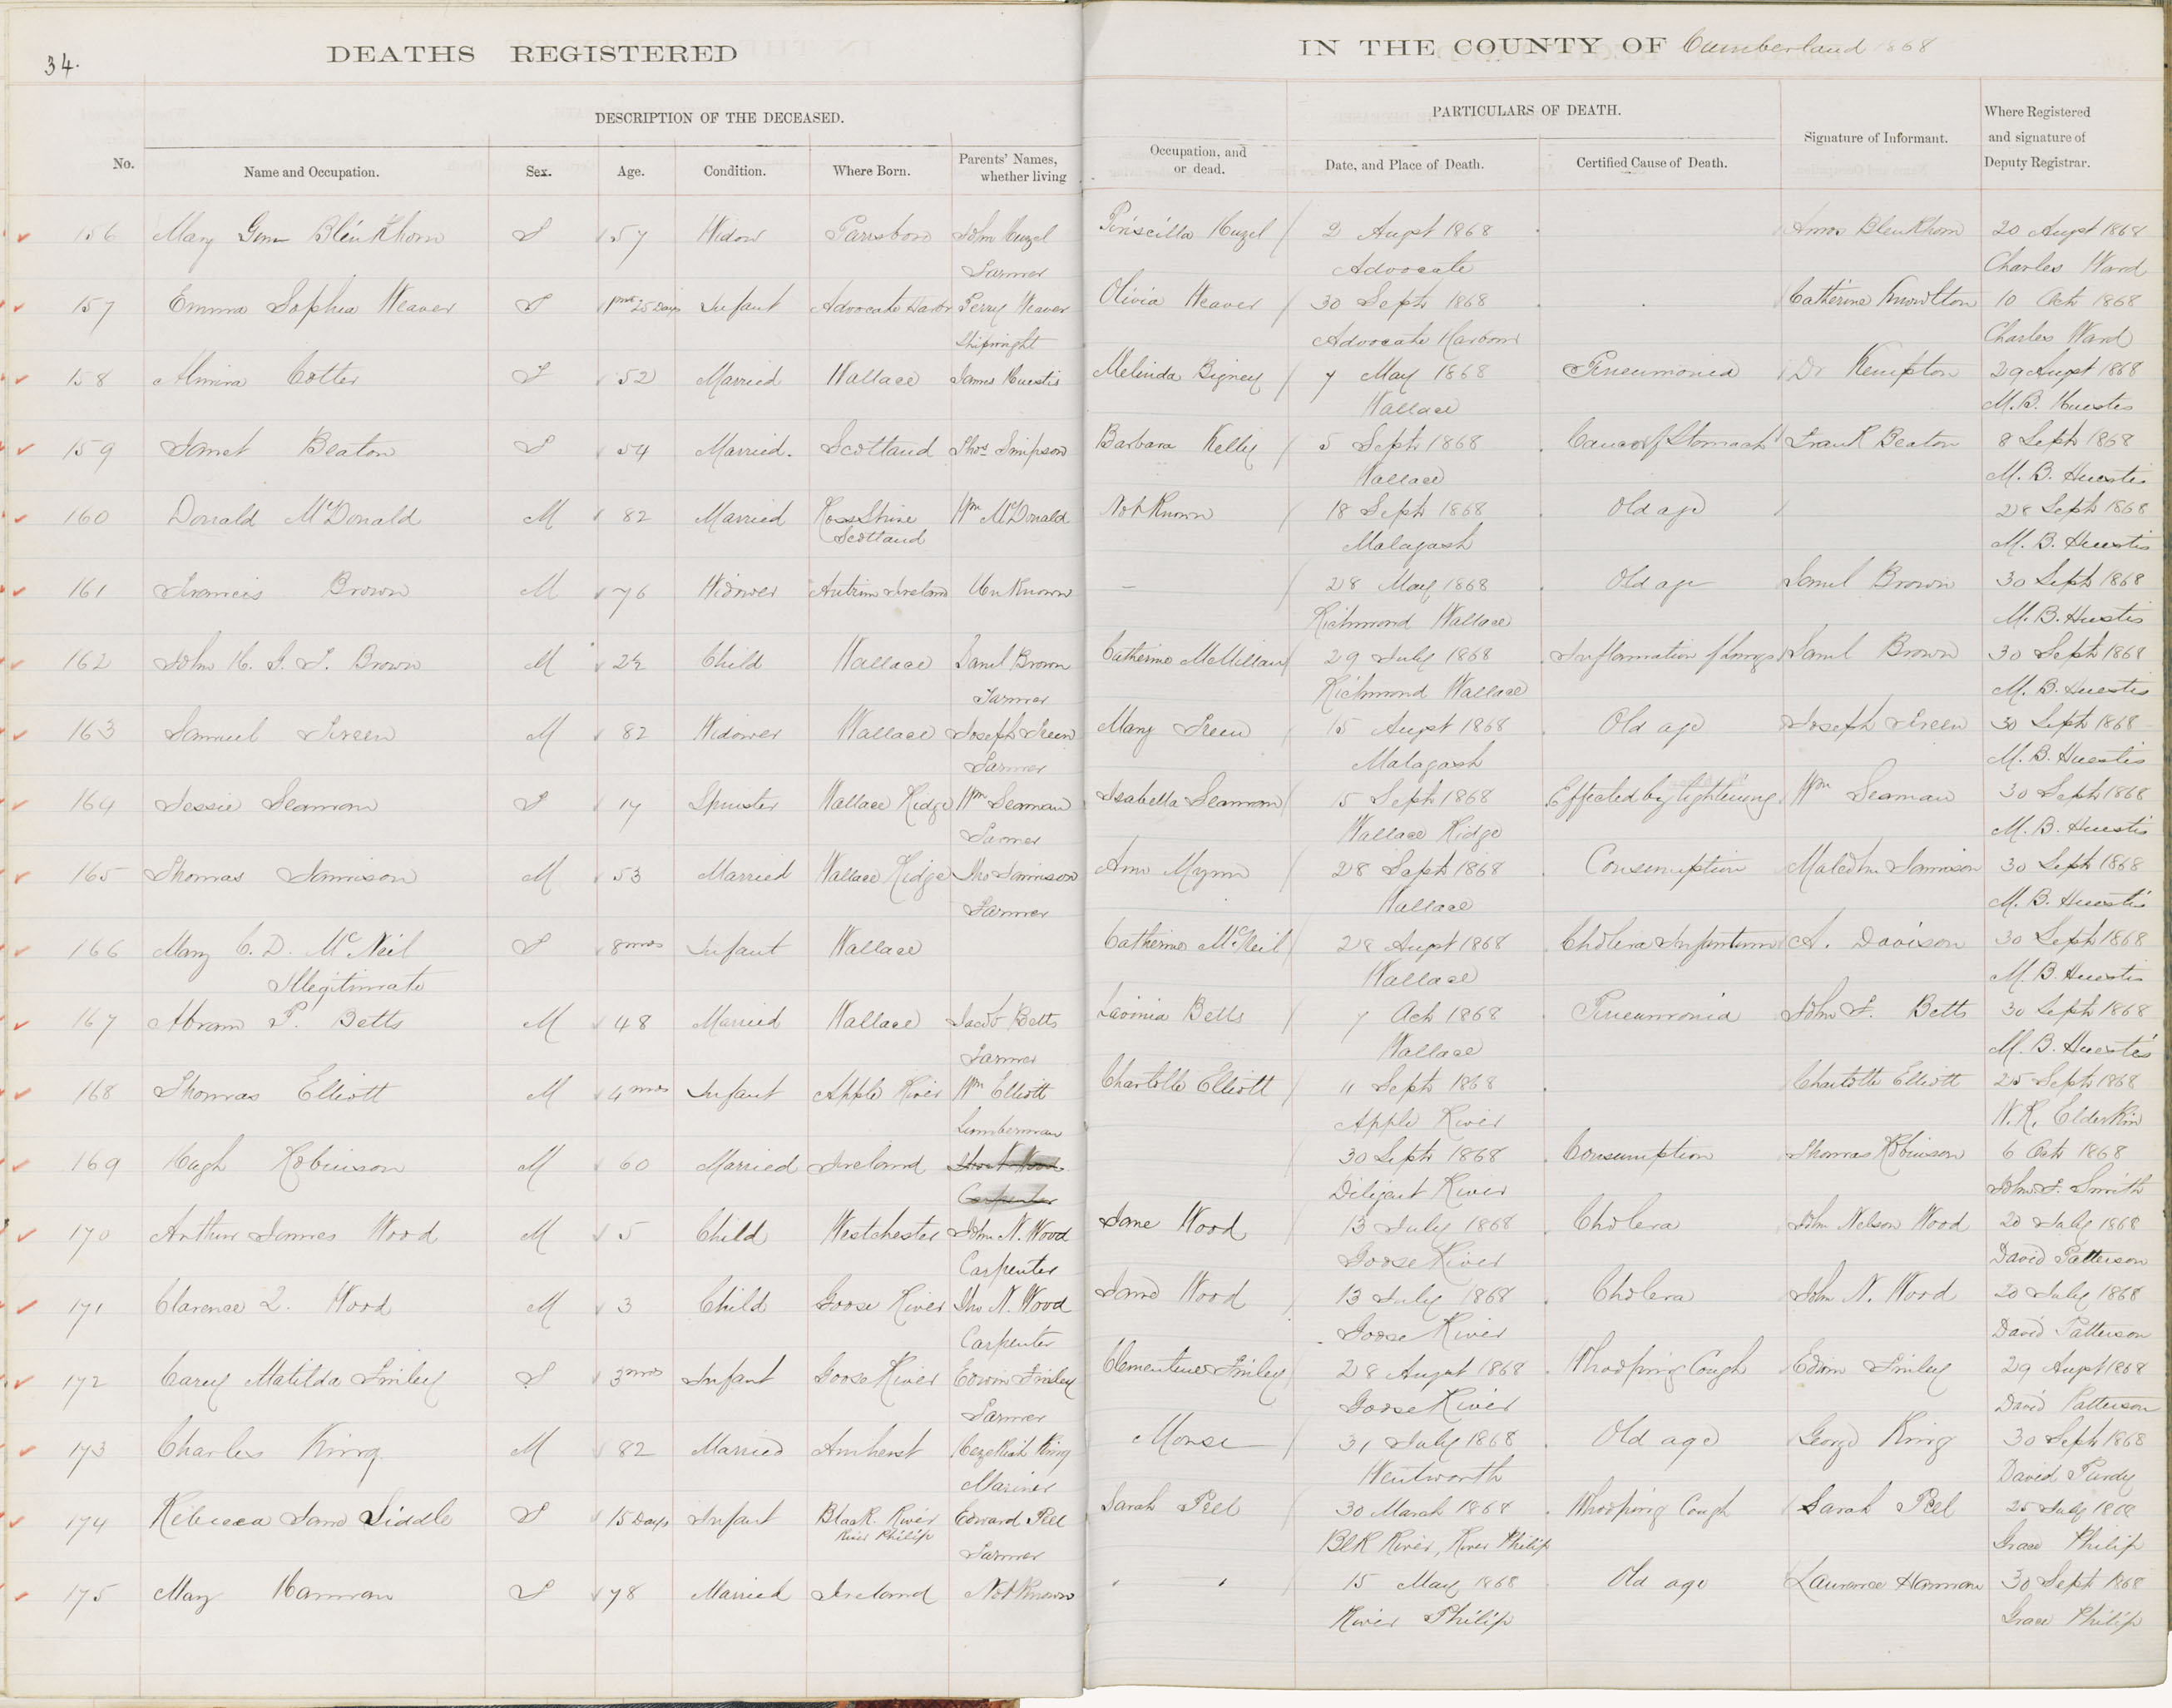 34.
DEATHS REGISTERED IN THE COUNTY OF Cumberland 1868
DESCRIPTION OF THE DECEASED. PARTICULARS OF DEATH.
No. Name and Occupation. Sex. Age. Condition. Where Born. Parents' Names, whether living Occupation, and or dead. Date, and Place of Death. Certified Cause of Death. Signature of Informant. Where Registered and signature of Deputy Registrar.
156 Mary Blenkhorn F 57 Widow Parrsboro John Huzel Priscilla Huzel 2 Augst 1868 Amos Blenkhorn 20 Augst 1868
Farmer Advocate Charles Ward
157 Emma Sophia Weaver F 1 mos 25 Days Infant Advocate Harbr Perry Weaver Olivia Weaver 30 Sept 1868 Catherine Knowlton 10 Oct 1868
Shipwright Advocate Harbour Charles Ward
158 Almira Cotter F 52 Married Wallace James Huestis Melinda Bigney 7 May 1868 Pneumonia Dr Kempton 29 Augst 1868
Wallace M. B. Huestis
159 Janet Beaton F 54 Married. Scotland Thos Simpson Barbara Kelly 5 Sept 1868 Cancer of Stomach Frank Beaton 8 Sept 1868
Wallace M. B. Huestis
160 Donald McDonald M 82 Married Ross Shire Wm McDonald Not Known 18 Sept 1868 Old age 28 Sept 1868
Scotland Malagash M. B. Huestis
161 Francis Brown M 76 Widower Antrim Ireland Unknown — 28 May 1868 Old age Saml Brown 30 Sept 1868
Richmond Wallace M. B. Huestis
162 John H. Brown M 2½ Child Wallace Saml Brown Catherine McMillan 29 July 1868 Inflamation of Lungs Saml Brown 30 Sept 1868
Farmer Richmond Wallace M. B. Huestis
163 Samuel Treen M 82 Widower Wallace Joseph Treen Mary Treen 15 Augst 1868 Old age Joseph Treen 30 Sept 1868
Farmer Malagash M. B. Huestis
164 Jessie Seaman F 17 Spinster Wallace Ridge Wm Seaman Isabella Seaman 15 Sept 1868 Effected by lightening Wm Seaman 30 Sept 1868
Farmer Wallace Ridge M. B. Huestis
165 Thomas Jamison M 53 Married Wallace Ridge Tho Jamison Ann 28 Sept 1868 Consumption Malcolm Jamison 30 Sept 1868
Farmer Wallace M. B. Huestis
166 Mary C. D. McNeil F 8 mos Infant Wallace Catherine McNeil 28 Augst 1868 Cholera Infantum A. Davison 30 Sept 1868
Illegitimate Wallace M. B. Huestis
167 Abram P. Betts M 48 Married Wallace Jacob Betts Lavinia Betts 7 Oct 1868 Pneumonia John F. Betts 30 Sept 1868
Farmer Wallace M. B. Huestis
168 Thomas Elliott M 4 mos Infant Apple River Wm Elliott Charlotte Elliott 11 Sept 1868 Charlotte Elliott 25 Sept 1868
Lumberman Apple River N. R. Elderkin
169 Hugh Robinson M 60 Married Ireland 30 Sept 1868 Consumption Thomas Robinson 6 Oct 1868
Carpenter Diligent River John F. Smith
170 Arthur James Wood M 5 Child Westchester John N. Wood Jane Wood 13 July 1868 Cholera John Nelson Wood 20 July 1868
Carpenter Goose River David Patterson
171 Clarence L. Wood M 3 Child Goose River Jno N. Wood Jane Wood 13 July 1868 Cholera John N. Wood 20 July 1868
Carpenter Goose River David Patterson
172 Carey Matilda Finley F 3 mos Infant Goose River Edwin Finley Clementine Finley 28 August 1868 Whooping Cough Edwin Finley 29 Augst 1868
Farmer Goose River David Patterson
173 Charles King M 82 Married Amherst Hezekiah King 31 July 1868 Old age George King 30 Sept 1868
Mariner Wentworth David Purdy
174 Rebecca Jane Siddle F 15 Days Infant Black River Edward Peel Sarah Peel 30 March 1868 Whooping Cough Sarah Peel 25 July 1868
River Philip Farmer Blk River, River Philip Grace Philip
175 Mary Hannan F 78 Married Ireland Not Known 15 May 1868 Old age Laurence Hannan 30 Sept 1868
River Philip Grace Philip